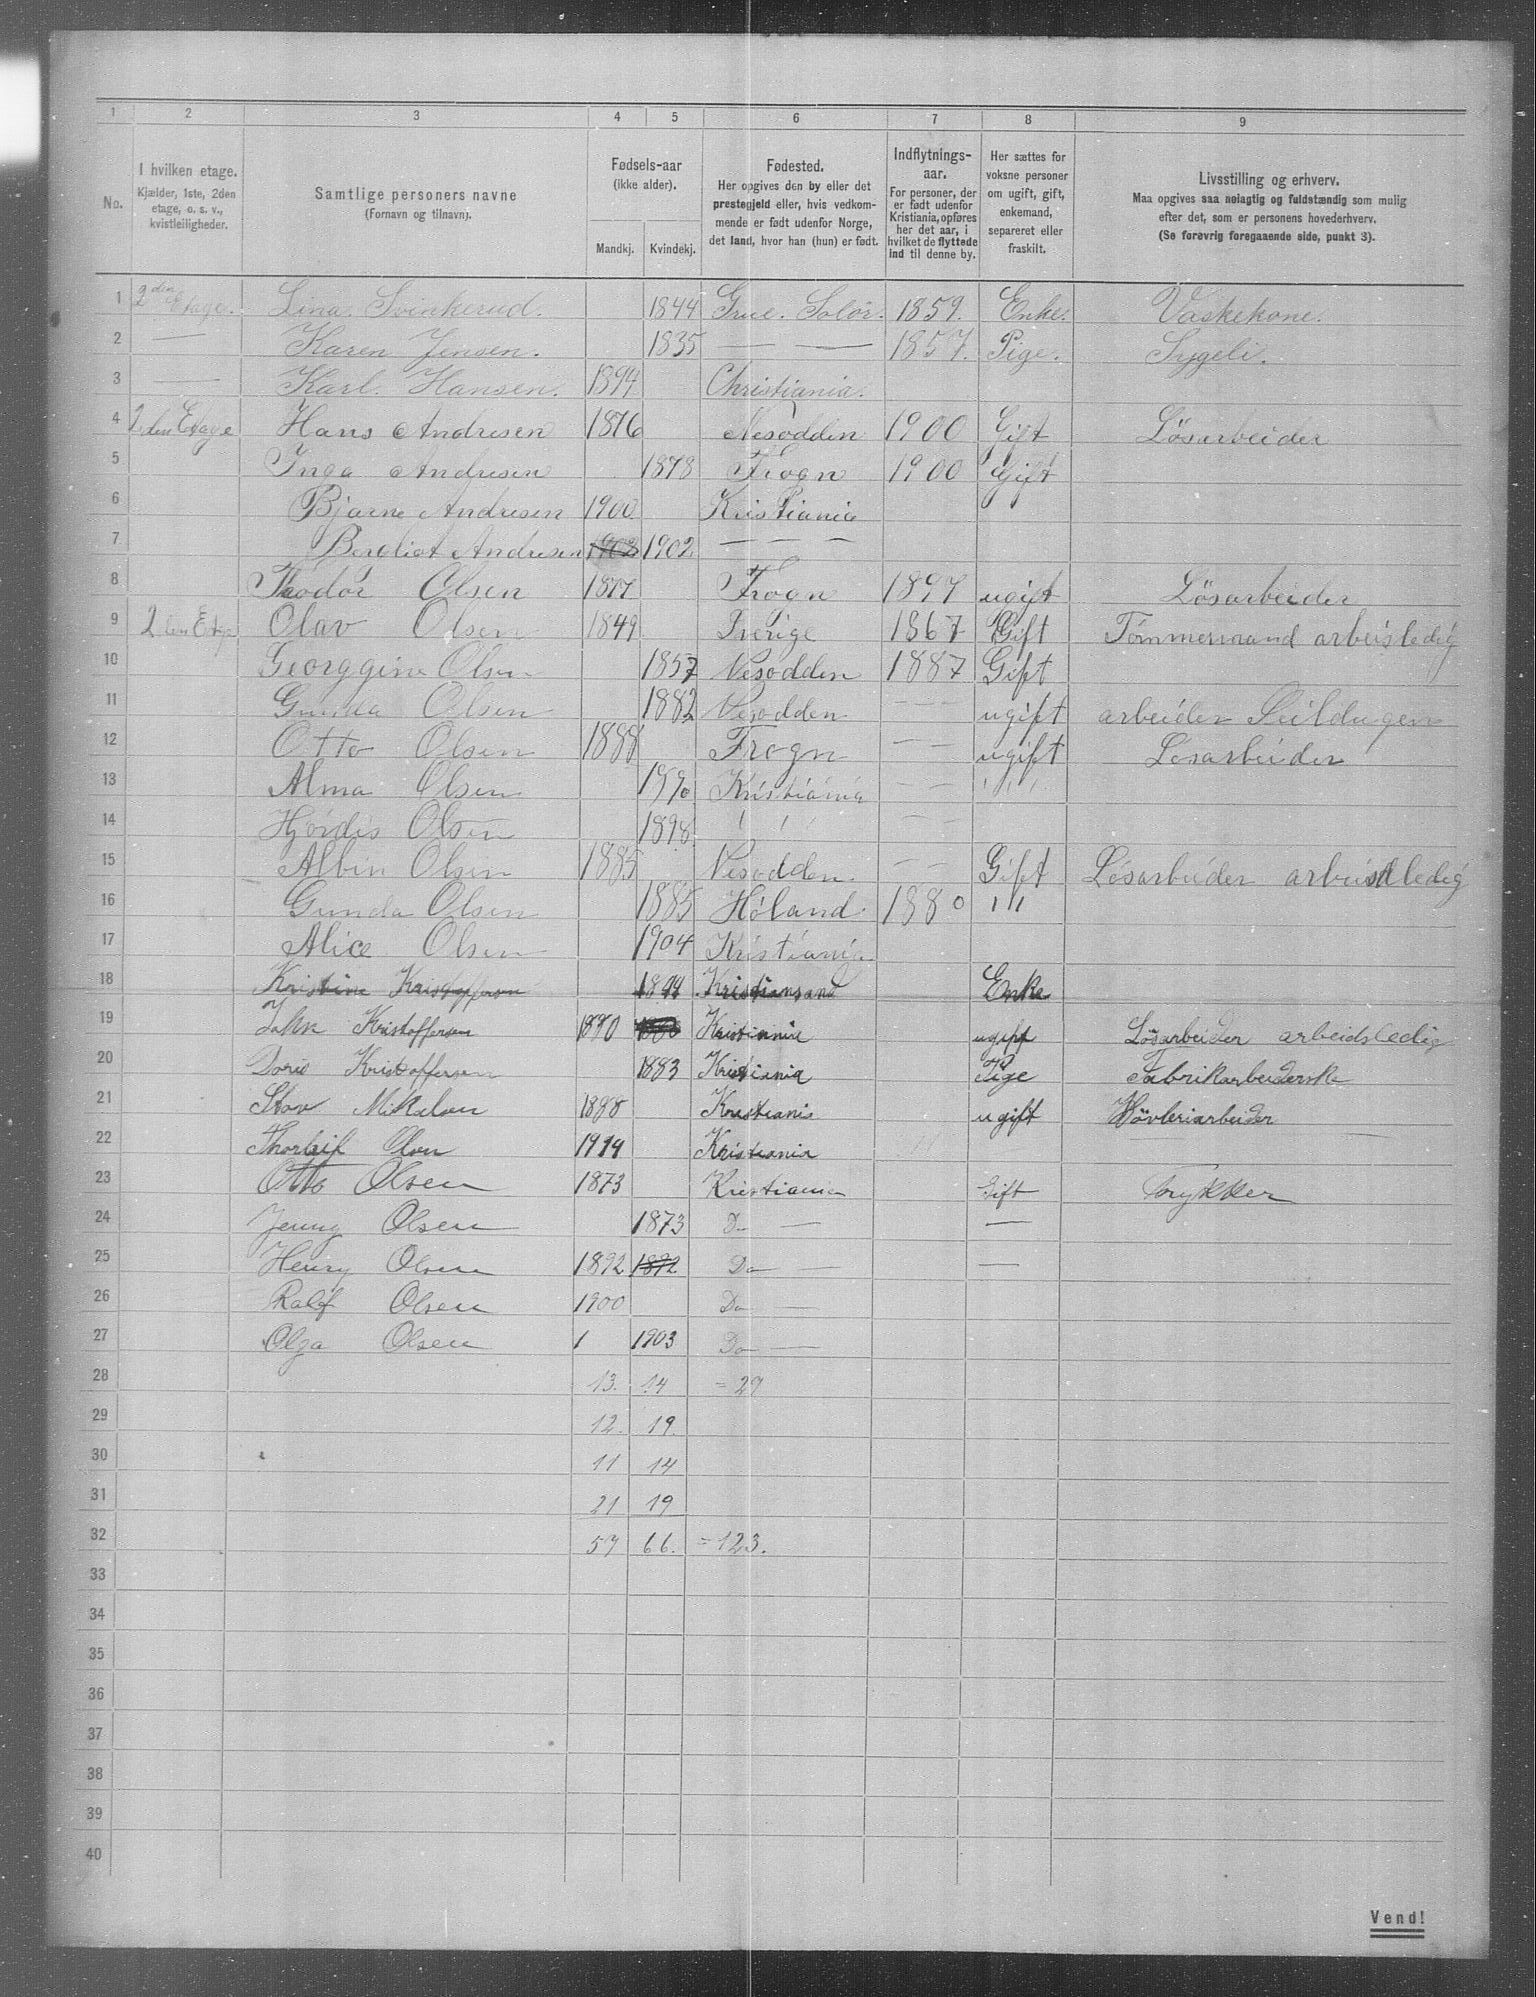 1 2 3 4 5 6 7 8 9
No.
I hvilken etage.
Kjælder, 1ste, 2den
etage, o. s. v.,
kvistleiligheder.
Samtlige personers navne
(Fornavn og tilnavn).
Fødsels-aar
(ikke alder).
Mandkj. Kvindekj.
Fødested.
Her opgives den by eller det
prestegjeld eller, hvis vedkom-
mende er født udenfor Norge,
det land, hvor han (hun) er født.
Indflytnings-
aar.
For personer, der
er født udenfor
Kristiania, opføres
her det aar, i
hvilket de flyttede
ind til denne by.
Her sættes for
voksne personer
om ugift, gift,
enkemand,
separeret eller
fraskilt.
Livsstilling og erhverv.
Maa opgives saa nøiagtig og fuldstændig som mulig
efter det, som er personens hovederhverv.
(Se forøvrig foregaaende side, punkt 3).
1 2den Etage. Lina Svinkerud. 1844 Grue. Solör. 1859. Enke. Vaskekone.
2 — Karen Jensen. 1835 — — 1857. Pige. Sygeli.
3 — Karl Hansen. 1894 Christiania.
4 2den Etage Hans Andresen 1876 Nesodden 1900 Gift Lösarbeider
5 Inga Andresen 1878 Frogn 1900 Gift
6 Bjarne Andresen 1900 Kristiania
7 Bergliot Andresen 1902 1902 — — —
8 Thodor Olsen 1877 Frogn 1897 ugift Lösarbeider
9 2den Etage Olav Olsen 1849 Sverige 1867 Gift Tömmermand arbeisledig
10 Georggine Olsen 1857 Nesodden 1887 Gift
11 Gunda Olsen 1882 Nesodden — — ugift arbeider Seildugen
12 Otto Olsen 1888 Frogn — — ugift Lösarbeider
13 Alma Olsen 1890 Kristiania — — " "
14 Hjördis Olsen 1898 " " — —
15 Albin Olsen 1885 Nesodden. — — Gift Lösarbeider arbeisledig
16 Gunda Olsen 1885 Höland 1880 " "
17 Alice Olsen 1904 Kristiania
18 Kristine Kristoffersen 1844 Kristiansand Enke
19 Kristoffersen 1880 Kristiania ugift Lösarbeider arbeidsledig
20 Doris Kristoffersen 1883 Kristiania Pige Fabrikarbeiderske
21 1898 Kristiania ugift Hövleriarbeider
22 Thorleif Olsen Kristiania
23 Otto Olsen 1873 Kristiania Gift Trykker
24 Jenny Olsen 1873 Do — —
25 Henry Olsen 1892 1892 Do — —
26 Ralf Olsen 1900 Do —
27 Olga Olsen 1 1903 Do —
28 13. 14 = 27
29 12. 19.
30 11 14
31 21 19
32 57 66. = 123.
33
34
35
36
37
38
39
40
Vend!